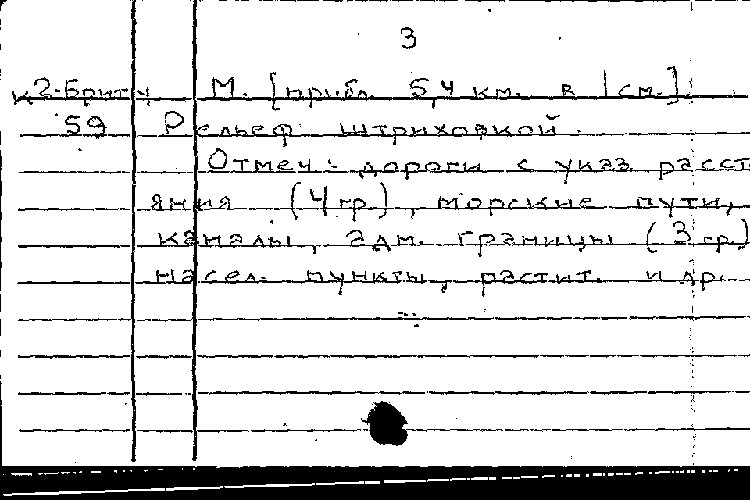 3
К2-Брит М. [прибл. 5,4 км. в 1 см.].
59 Рельеф штриховкой.
Отмеч.: дороги с указ. расст
яния (4 гр.), морские пути,
каналы, адм. границы (3 гр.)
насел. пункты, растит. и др.